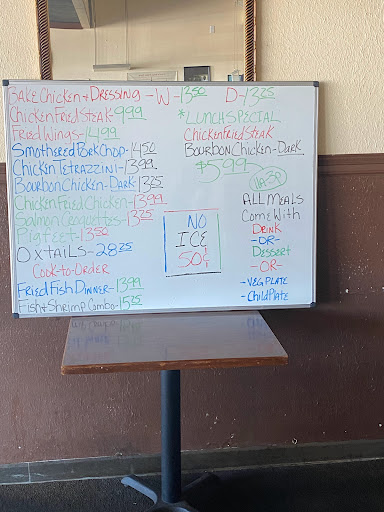 BAKE Chicken + DRESSING - W - 13.50 D - 13.25
Chicken Fried Steak - 9.99
Fried Wings - 14.99
Smothered Pork Chop - 14.50
Chicken Tetrazzini - 13.99
Bourbon Chicken - Dark - 13.25
Chicken Fried Chicken - 13.99
Salmon Croquettes - 13.25
Pig feet - 13.50
Oxtails - 28.25
Cook-to-Order
Fried Fish Dinner - 13.99
Fish & Shrimp Combo - 15.25
*LUNCH SPECIAL
Chicken Fried Steak
Bourbon Chicken - Dark
$5.99
NO
ICE
50¢
ALL MEALS
Come With
DRINK
-OR-
Dessert
-OR-
- VEG PLATE
- Child Plate